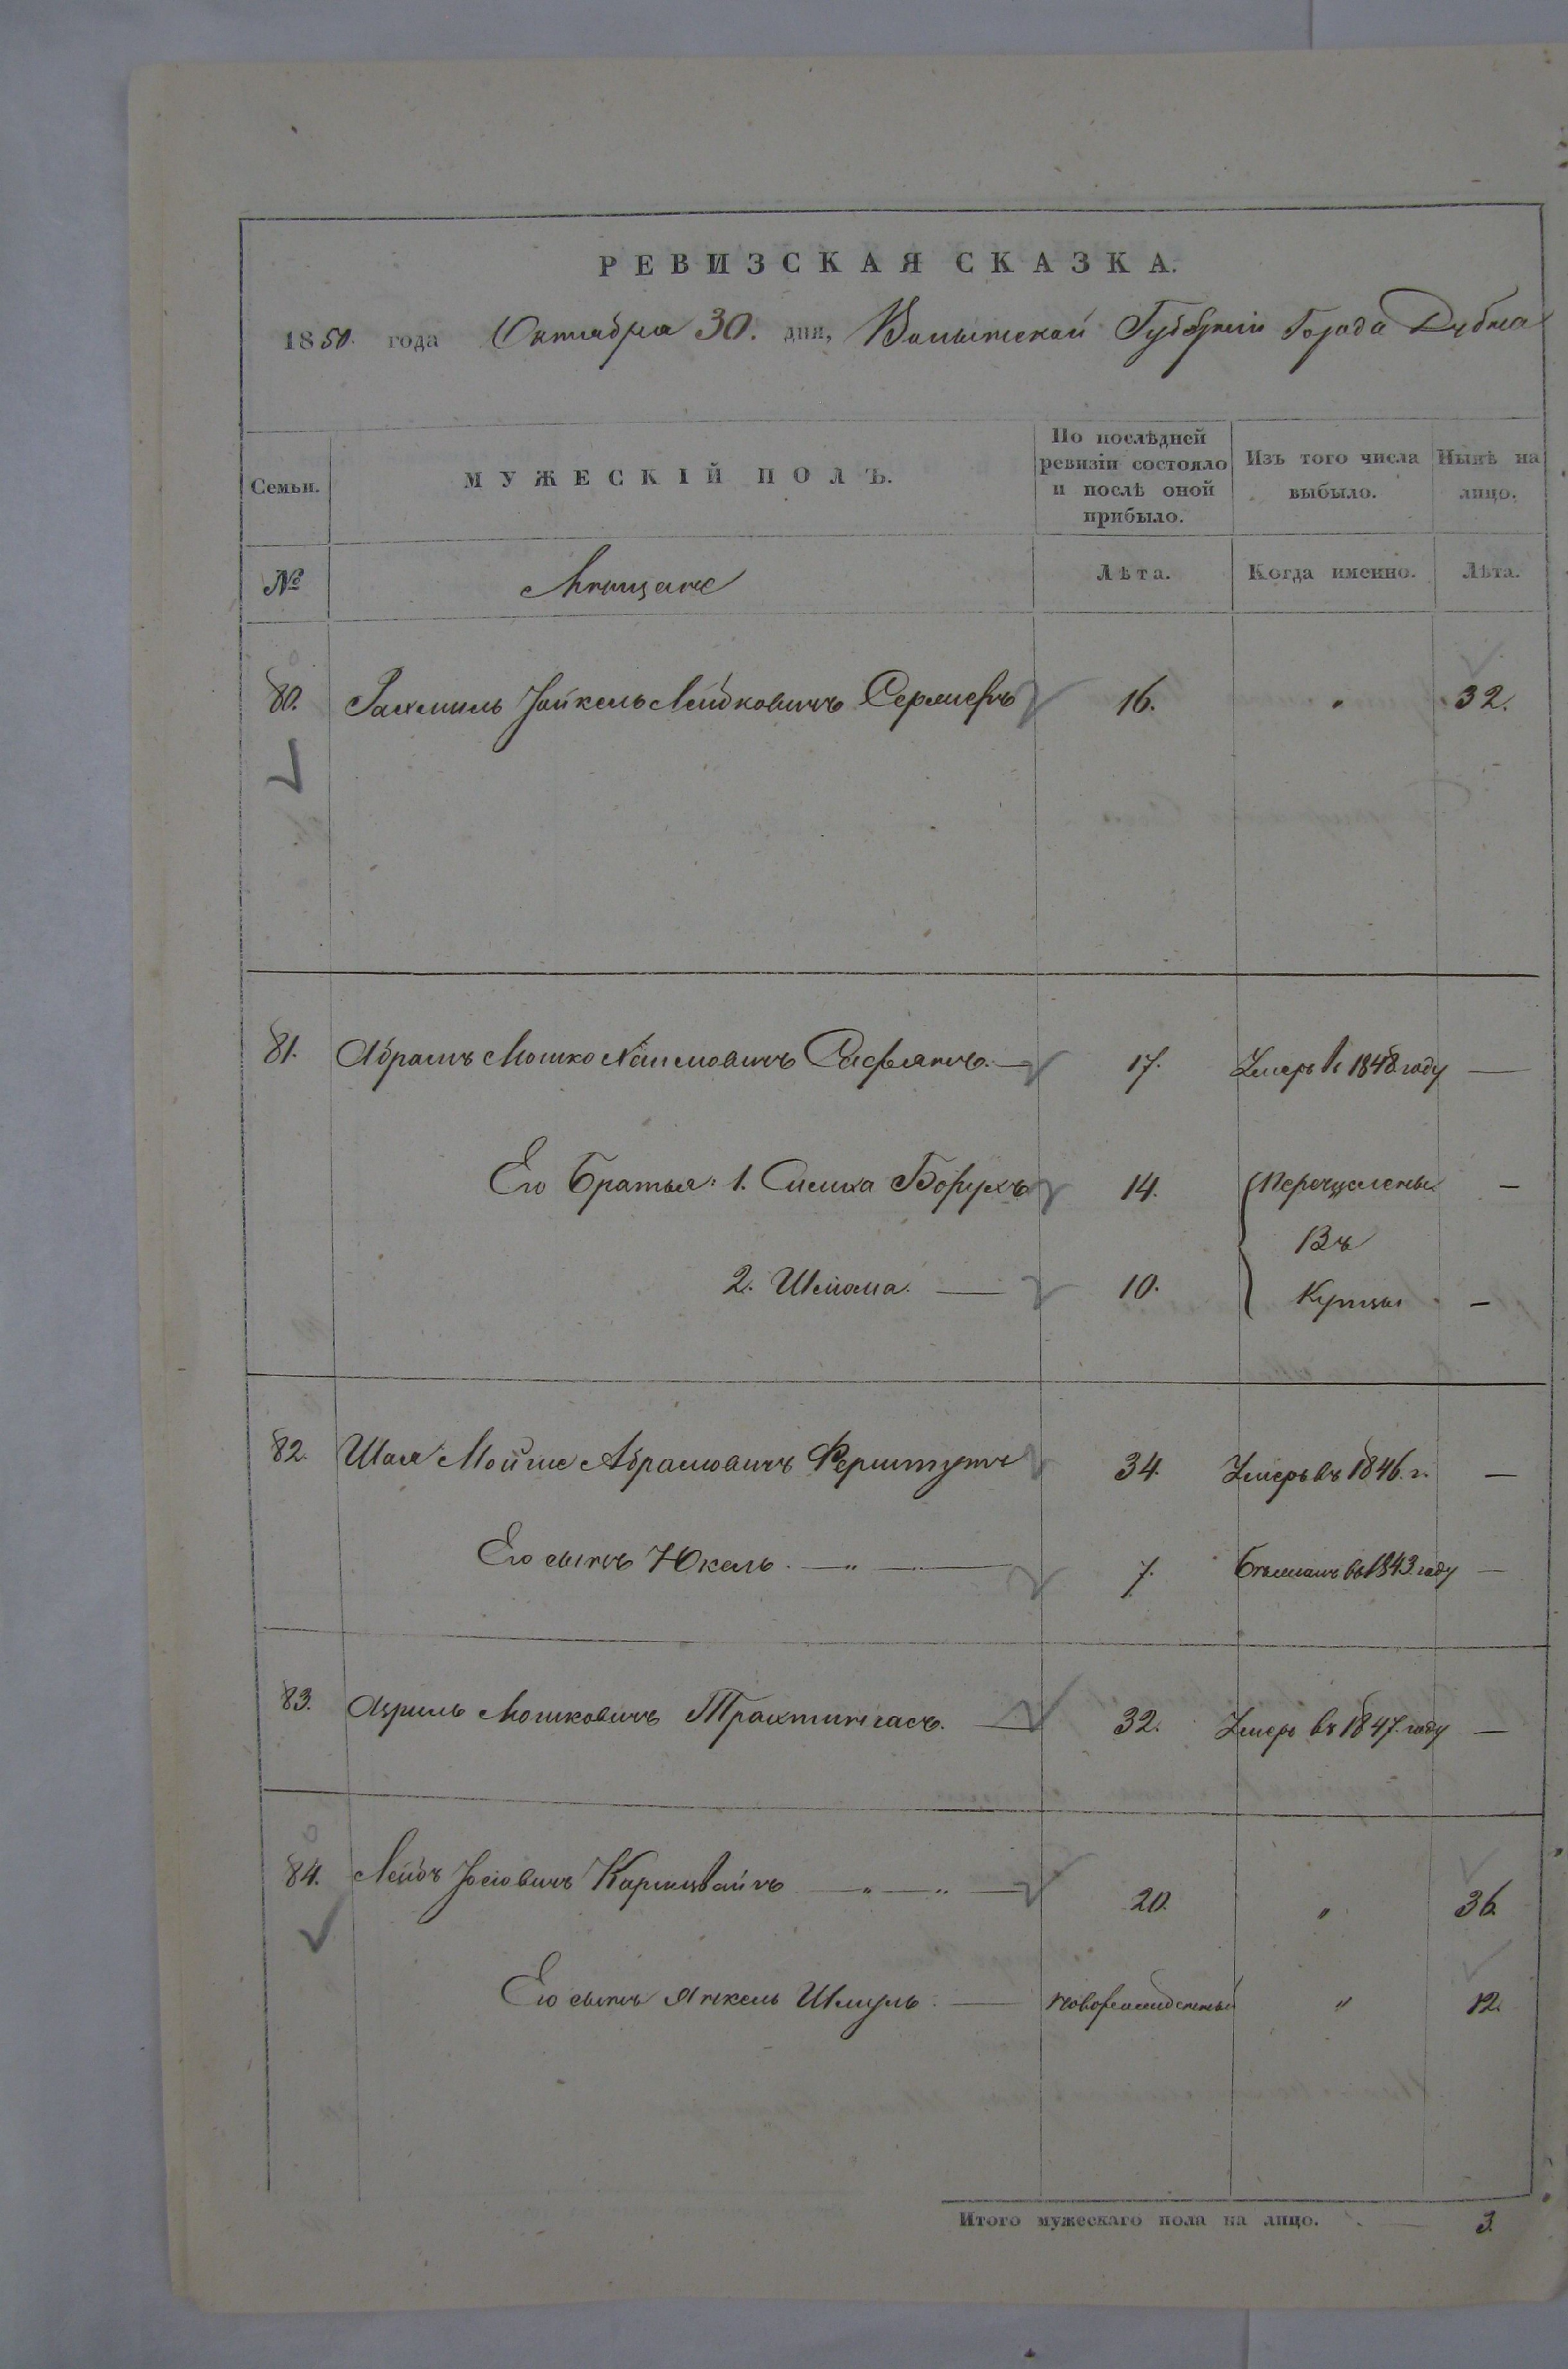 РЕВИЗСКАЯ СКАЗКА.
1850. года Октября 30. дня, Волынской Губерніи Города Дубна
Семьи.
МУЖЕСКІЙ ПОЛЪ.
По послѣдней ревизіи состояло и послѣ оной прибыло.
Изъ того числа выбыло.
Нынѣ на лицо.
№
Мѣщане
Лѣта.
Когда именно.
Лѣта.
80. Рахмиль Іойкель Лейбковичъ 16. " 32.
81. Абрамъ Мошко Хаимовичъ Сафьянъ. — 17. Умеръ въ 1848 году —
Его Братья: 1. Симха Борухъ 14. Перечислены —
Въ
2. Шлома. — 10. Купцы —
82. Шая Мойше Абрамовичъ Ферштутъ 34. Умеръ въ 1846. г. —
Его сынъ Юкель. — " — 7. Бѣжалъ въ 1843 году —
83. Азриль Мошковичъ — 32. Умеръ въ 1847. году —
84. Лейбъ Іосіовичъ — " — " — 20. " 36.
Его сынъ Янкель Шмуль. — новорожденный " 12.
Итого мужескаго пола на лицо. — 3.